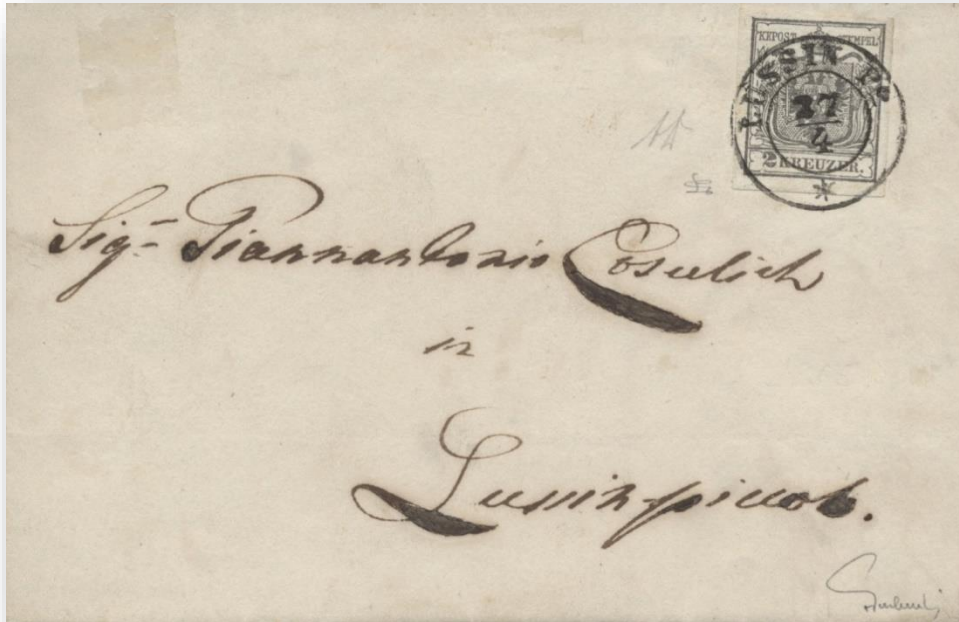 KKPOST-STEMPEL
LUSSIN Po
27
4
2 KREUZER.
Sigr Giannantonio Cosulich
in
Lussinpiccolo.